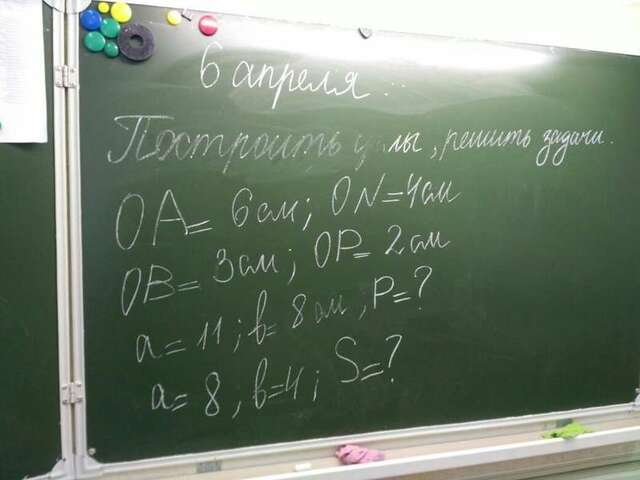 6 апреля
Построить углы, решить задачи.
OA = 6 см; ON = 4 см
OB = 3 см; OP = 2 см
a = 11; b = 8 см, P = ?
a = 8, b = 4; S = ?